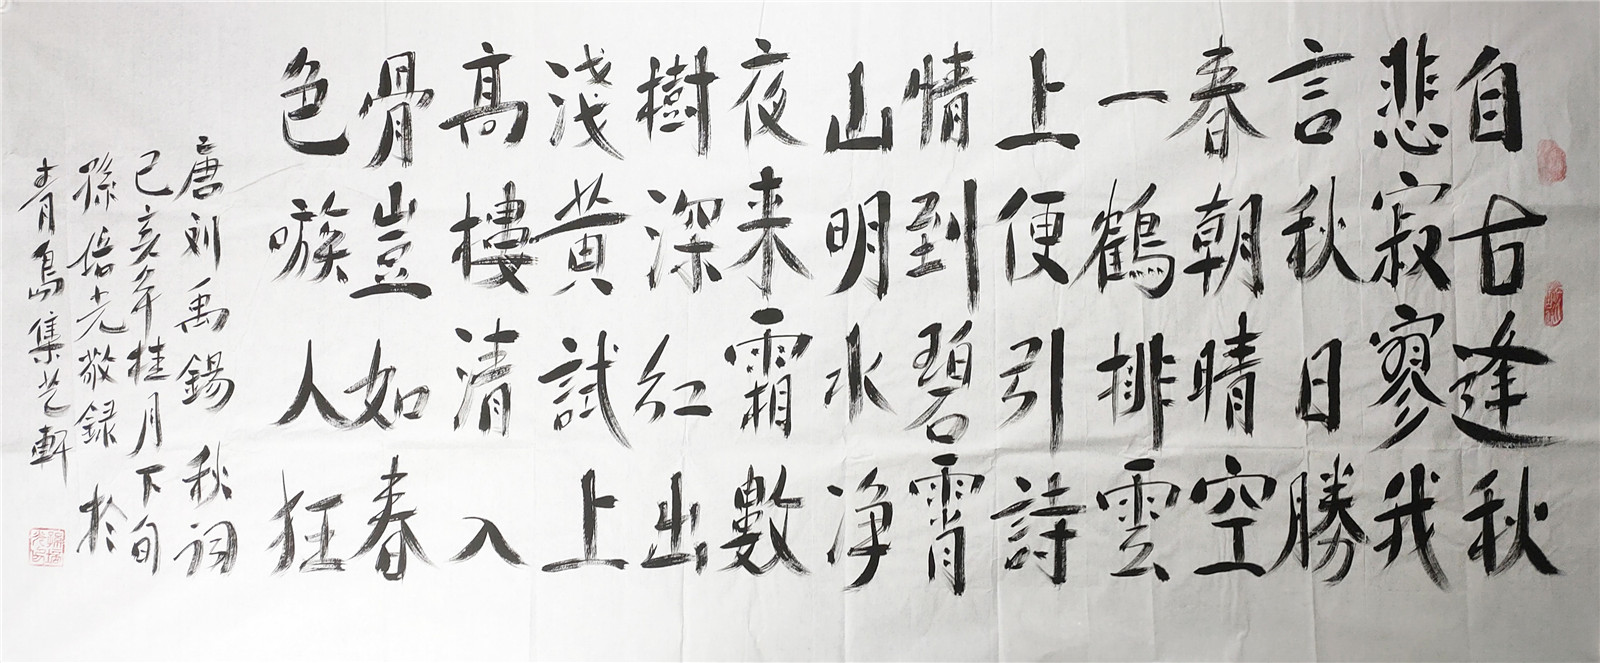 自古逢秋
悲寂寥我
言秋日勝
春朝晴空
一鶴排雲
上便引詩
情到碧霄
山明水净
夜来霜數
樹深紅出
淺黄試上
髙樓清入
骨豈如春
色嗾人狂
唐刘禹錫 秋词
己亥年桂月下旬
孫培光敬録 於
青島集艺軒